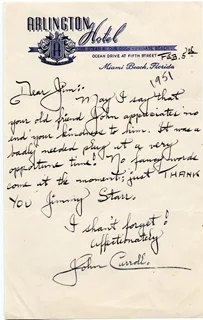 ARLINGTON
Hotel
OCEAN DRIVE AT FIFTH STREET
Miami Beach, Florida
Feb. 5th
1951
Dear Jim:
May I say that
your old friend John appreciates no
end your kindness to him. It was a
badly needed plug at a very
opportune time! No fancy words
come at the moment; just THANK
YOU Jimmy Starr.
I shan't forget!
Affectionately
John Carroll.